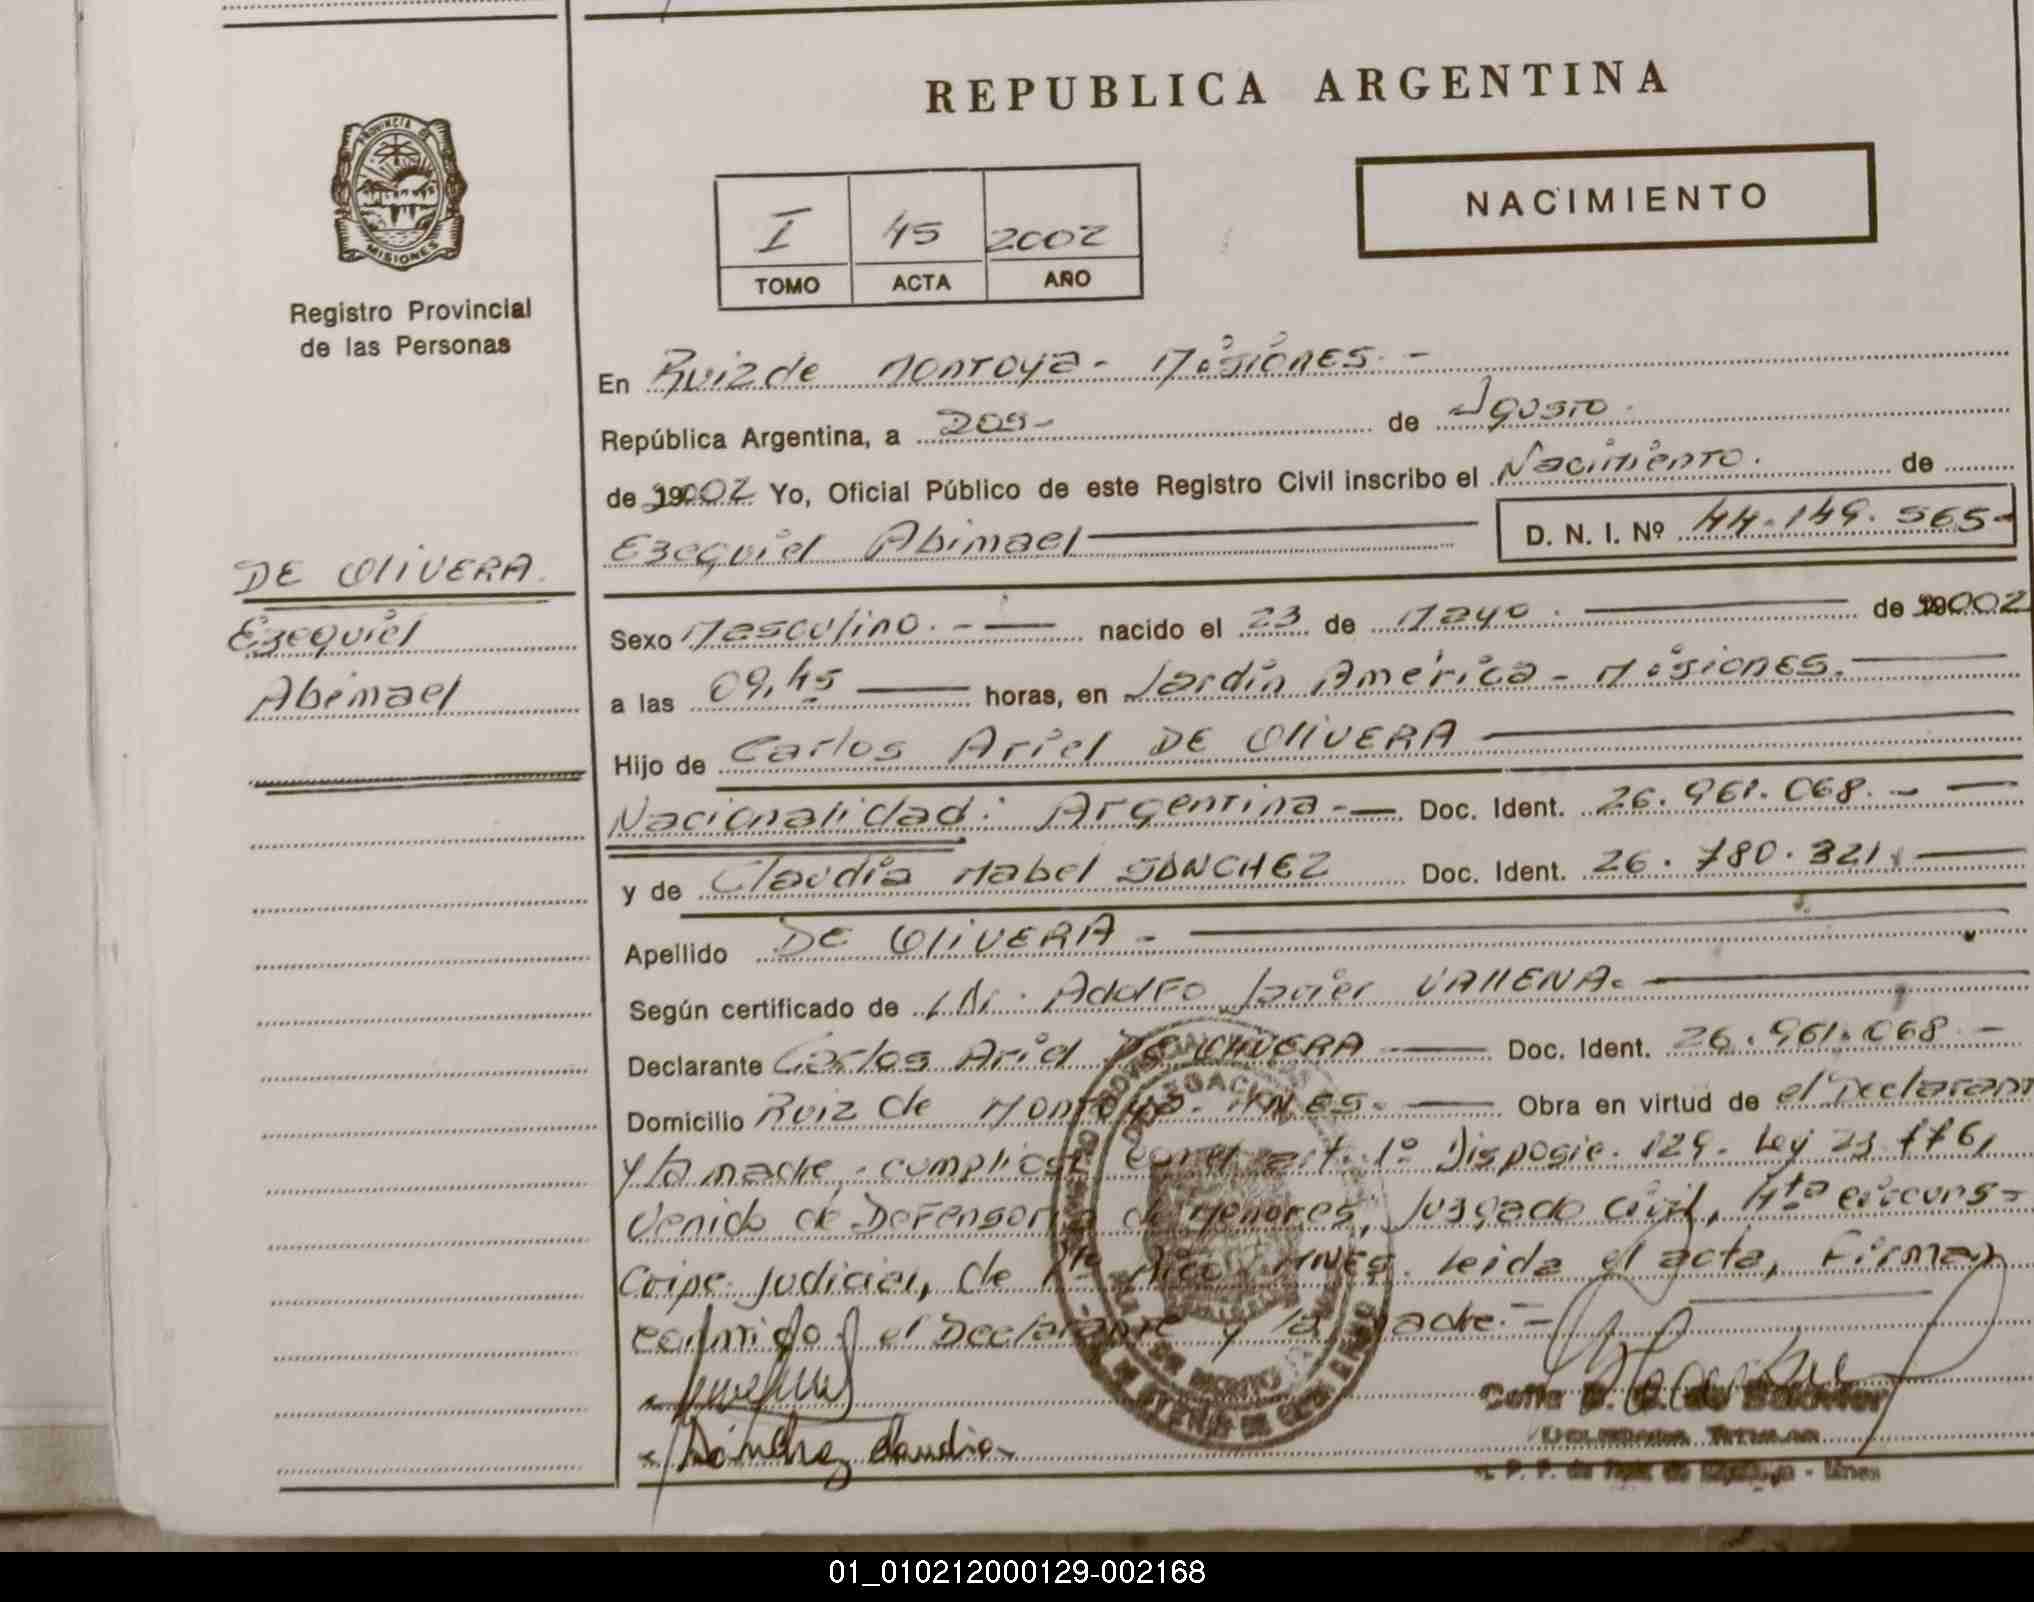 REPUBLICA ARGENTINA
PROVINCIA DE
MISIONES
Registro Provincial
de las Personas
I 45 2002
TOMO ACTA AÑO
NACIMIENTO
En Ruiz de Montoya - Misiones. -
República Argentina, a Dos - de Agosto.
de 2002 Yo, Oficial Público de este Registro Civil inscribo el Nacimiento. de
Ezequiel Abimael D. N. I. Nº 44.149.565-
DE OLIVERA
Ezequiel
Abimael
Sexo Masculino. - nacido el 23 de Mayo. de 2002
a las 09,45 horas, en Jardín América - Misiones.
Hijo de Carlos Ariel DE OLIVERA
Nacionalidad: Argentina - Doc. Ident. 26.961.068. -
y de Claudia Mabel SANCHEZ Doc. Ident. 26.780.321.
Apellido DE OLIVERA -
Según certificado de Dr. Adolfo Javier VALLENA.
Declarante Carlos Ariel DE OLIVERA Doc. Ident. 26.961.068 -
Domicilio Ruiz de Montoya - MNES. - Obra en virtud de el Declarant
y la madre, cumplióse con el art. 1º Disposic. 129. Ley 23.776,
venido de Defensoría de Menores, Juzgado Civil, 4ta circuns-
cripc. judicial, de Pto Rico - MNES. leida el acta, Firman
conmigo el Declarante y la madre. -
Sánchez Claudia
01_010212000129-002168